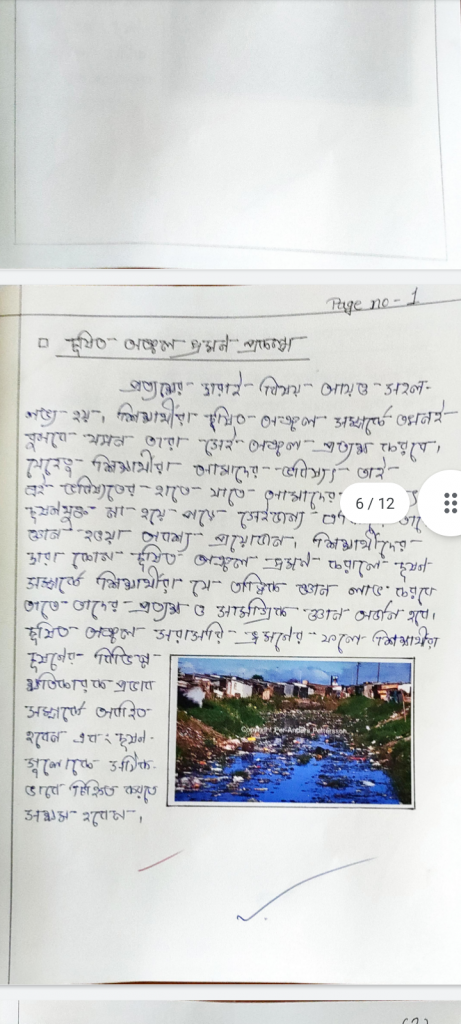 Page no - 1
□ দূষিত অঞ্চল ভ্রমন প্রকল্পে
প্রত্যক্ষের দ্বারাই বিষয় আয়ত্ত সহজ-
লভ্য হয়, শিক্ষার্থীরা দূষিত অঞ্চল সম্পর্কে তখনই
বুঝবে যখন তারা সেই অঞ্চল প্রত্যক্ষ করবে,
যেহেতু শিক্ষার্থীরা আমাদের ভবিষ্যৎ তাই
এই ভবিষ্যতের হাতে যাতে আমাদের
6 / 12
দূষনযুক্ত না হয়ে পড়ে সেইজন্য
জ্ঞান হওয়া অবশ্য প্রয়োজন, শিক্ষার্থীদের
দ্বারা কোন দূষিত অঞ্চল ভ্রমন করালে দূষন
সম্পর্কে শিক্ষার্থীরা যে তাত্ত্বিক জ্ঞান লাভ করবে
তাতে তাদের প্রত্যক্ষ ও সামগ্রিক জ্ঞান অর্জন হবে,
দূষিত অঞ্চল সরাসরি ভ্রমনের ফলে শিক্ষার্থীরা
দূষনের বিভিন্ন
ক্ষতিকারক প্রভাব
সম্পর্কে অবহিত
হবেন এবং দূষন
গুলোকে সঠিক
ভাবে চিহ্নিত করতে
সক্ষম হবেন,
Copyright Per-Anders Pettersson
(2)